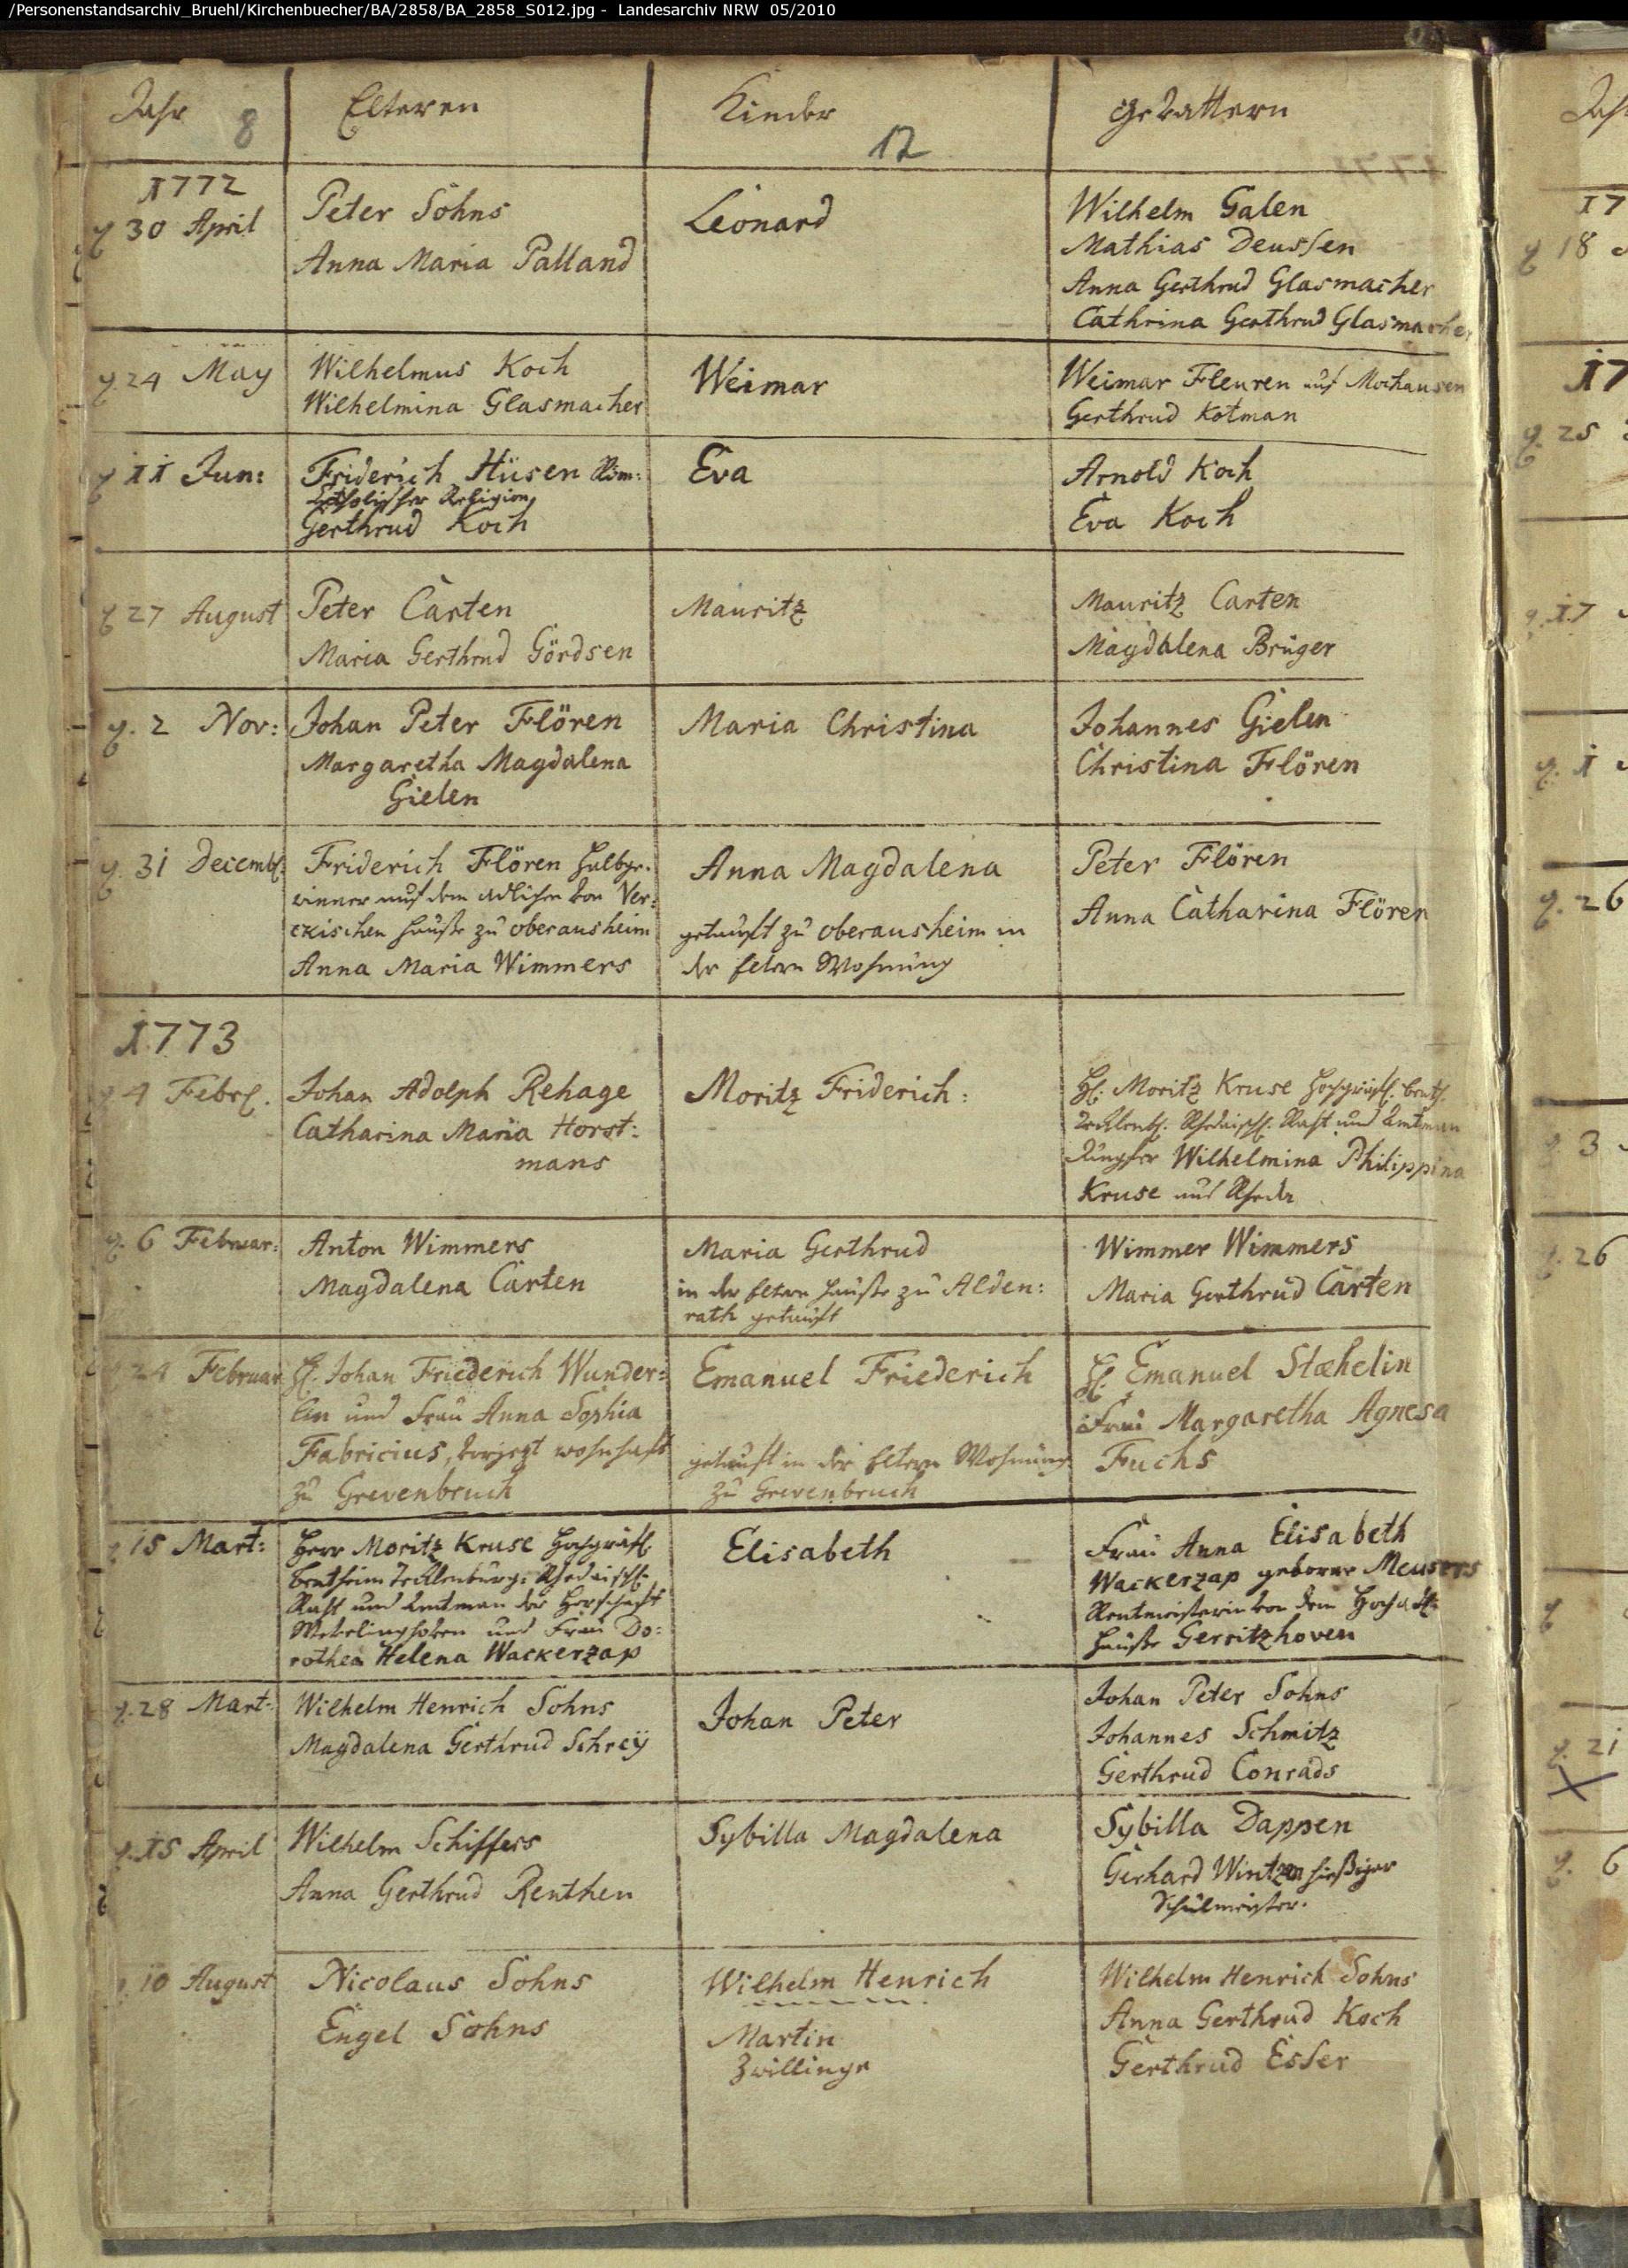 /Personenstandsarchiv_Bruehl/Kirchenbuecher/BA/2858/BA_2858_S012.jpg - Landesarchiv NRW 05/2010
Jahr 8 Elteren Kinder Gevattern
12
1772
30 April
Peter Sohns
Anna Maria Palland
Leonard
Wilhelm Galen
Mathias Deussen
Anna Gerthrud Glasmacher
Cathrina Gerthrud Glasmacher
24 May
Wilhelmus Koch
Wilhelmina Glasmacher
Weimar
Weimar Fleuren auf Mochausen
Gerthrud Kotman
11 Jun:
Friderich Hüsen Röm:
Catholischer Religion
Gerthrud Koch
Eva
Arnold Koch
Eva Koch
27 August
Peter Carten
Maria Gerthrud Gördsen
Mauritz
Mauritz Carten
Magdalena Brüger
2 Nov:
Johan Peter Flören
Margaretha Magdalena
Gielen
Maria Christina
Johannes Gielen
Christina Flören
31 Decemb.
Friderich Flören Halbge-
winner auf dem adlichen von Ver:
ckischen Hauße zu oberausheim
Anna Maria Wimmers
Anna Magdalena
getauft zu oberausheim in
der Eltern Wohnung
Peter Flören
Anna Catharina Flören
1773
4 Febr.
Johan Adolph Rehage
Catharina Maria Horst:
mans
Moritz Friderich:
H. Moritz Kruse Hochgräfl. Bent.
Tecklenb. Rhedaisch. Raht und Amtman
Jungfer Wilhelmina Philippina
Kruse aus Rheda
6 Februar:
Anton Wimmers
Magdalena Carten
Maria Gerthrud
in der Eltern Hauße zu Alden:
rath getauft
Wimmer Wimmers
Maria Gerthrud Carten
24 Februar
H. Johan Friederich Wunder:
lin und Frau Anna Sophia
Fabricius, vorjezt wohnhaft
zu Grevenbruch
Emanuel Friederich
getauft in der Eltern Wohnung
zu Grevenbruch
H. Emanuel Stæhelin
Frau Margaretha Agnesa
Fuchs
15 Mart:
Herr Moritz Kruse Hochgräfl.
Bentheim Tecklenburg: Rhedaisch.
Raht und Amtman der Herschaft
Wevelinghoven und Frau Do:
rothea Helena Wackerzap
Elisabeth
Frau Anna Elisabeth
Wackerzap geborne Meusers
Rentmeisterin von dem Hochadl:
Hauße Gerritzhoven
28 Mart:
Wilhelm Henrich Sohns
Magdalena Gerthrud Schreÿ
Johan Peter
Johan Peter Sohns
Johannes Schmitz
Gerthrud Conrads
15 April
Wilhelm Schiffers
Anna Gerthrud Renthen
Sybilla Magdalena
Sybilla Dappen
Gerhard Wintzen hießiger
Schulmeister.
10 August
Nicolaus Sohns
Engel Sohns
Wilhelm Henrich
Martin
Zwillinge
Wilhelm Henrich Sohns
Anna Gerthrud Koch
Gerthrud Esser